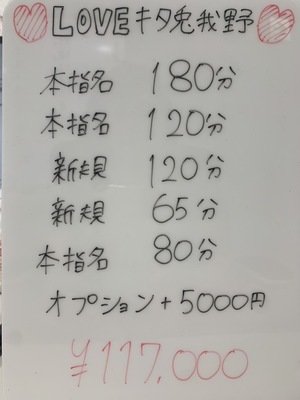 LOVEキタ兎我野
本指名 180分
本指名 120分
新規 120分
新規 65分
本指名 80分
オプション+5000円
¥117,000